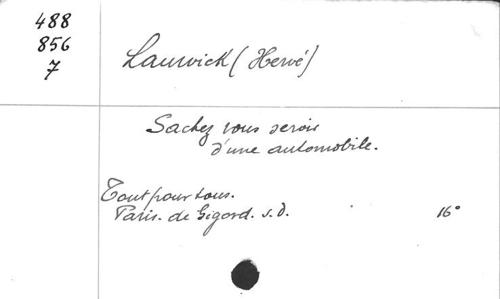 488
856
7
Lauwick (Hervé)
Sachez vous servir
d'une automobile.
Tout pour tous.
Paris. de Gigord. s.d. 16°